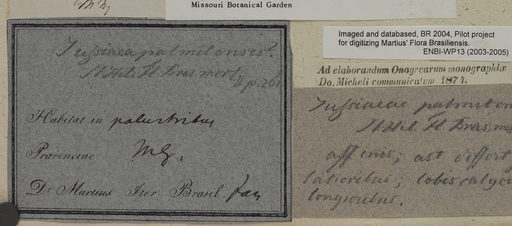 Missouri Botanical Garden
Imaged and databased, BR 2004, Pilot project
for digitizing Martius' Flora Brasiliensis.
ENBI-WP13 (2003-2005)
Jussiaea palmitensis?
St Hil. Fl. Bras. mer.
p. 26
Habitat in palustribus
Provinciae
Dr Martius Iter Brasil
Ad elaborandum Onagrearum monographiæ
Do. Micheli communicatum 1874.
Jussiaeae palmiten
St Hil. Fl. Bras. me
affinis; ast differt
latioribus; lobis calyci
longioribus.